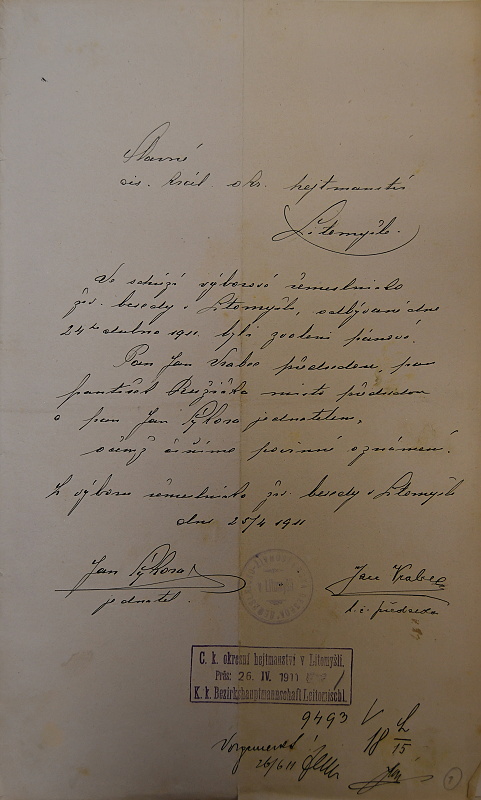 Slavné
cis. král. okr. hejtmanství
Litomyšl.
Ve schůzi výborové řemeslnicko
živ. besedy v Litomyšli, odbývané dne
24ho dubna 1911. byli zvoleni pánové:
Pan Jan Vrabec předsedou, pan
František Růžička místopředsedou
a pan Jan Sýkora jednatelem,
o čemž činíme povinné oznámení.
Z výboru řemeslnicko živ. besedy v Litomyšli
dne 25/4 1911
Jan Sýkora
jednatel.
Jan Vrabec
t.č. předseda
C. k. okresní hejtmanství v Litomyšli.
Präs: 26. IV. 1911
K. k. Bezirkshauptmannschaft Leitomischl.
9493 V
18 L/15
26/6 11